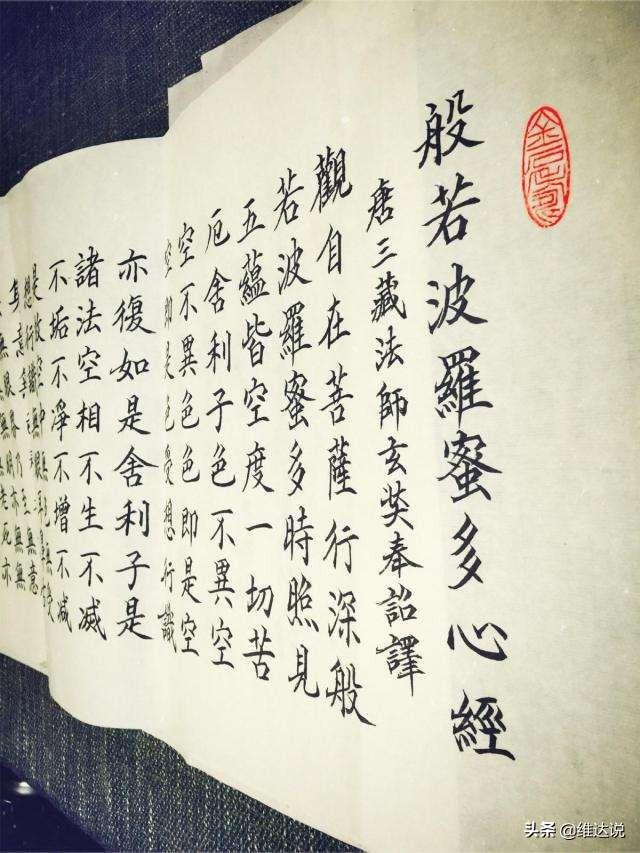 般若波羅蜜多心經
唐三藏法師玄奘奉詔譯
觀自在菩薩行深般
若波羅蜜多時照見
五蘊皆空度一切苦
厄舍利子色不異空
空不異色色即是空
空即是色受想行識
亦復如是舍利子是
諸法空相不生不滅
不垢不淨不增不減
是故空中無色無受
想行識無眼耳
头条 @维达说